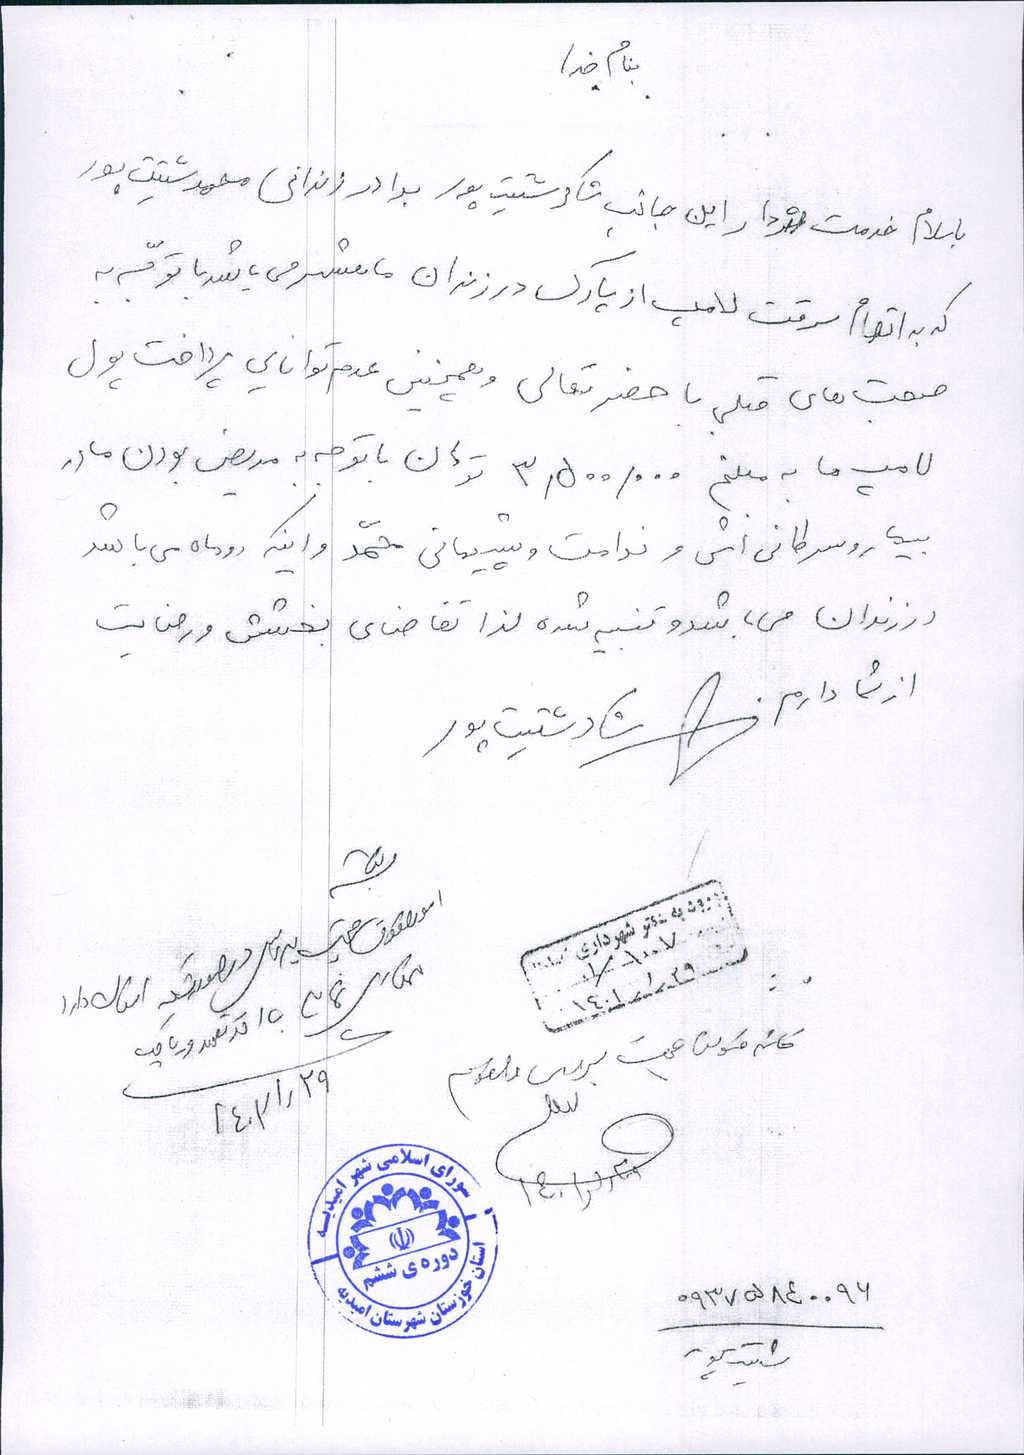 بنام خدا
باسلام خدمت شهردار این جانب شاکر شتیت پور برادر زندانی محمد شتیت پور
که به اتهام سرقت لامپ از پارک در زندان ماهشهر می باشد با توجه به
صحبت های قبلی با حضرتعالی و همچنین عدم توانایی پرداخت پول
لامپ ها به مبلغ ۳,۵۰۰/۰۰۰ تومان با توجه به مریض بودن مادر
بیمار و سرطانی اش و ندامت و پشیمانی محمد و اینکه دو ماه می باشد
در زندان می باشد و تنبیه شده لذا تقاضای بخشش و رضایت
از شما دارم
شاکر شتیت پور
امور حقوقی جهت بررسی در صورتیکه امکان دارد
همکاری نمائید با اخذ تعهد و
۱۴۰۲/۱/۲۹
ورود به دفتر شهرداری امیدیه
۱۰۰۷
۱۴۰۲/۱/۲۹
جهت بررسی و اقدام
شورای اسلامی شهر امیدیه
دوره ی ششم
استان خوزستان شهرستان امیدیه
۰۹۳۷۵۸۴۰۰۹۶
شتیت پور